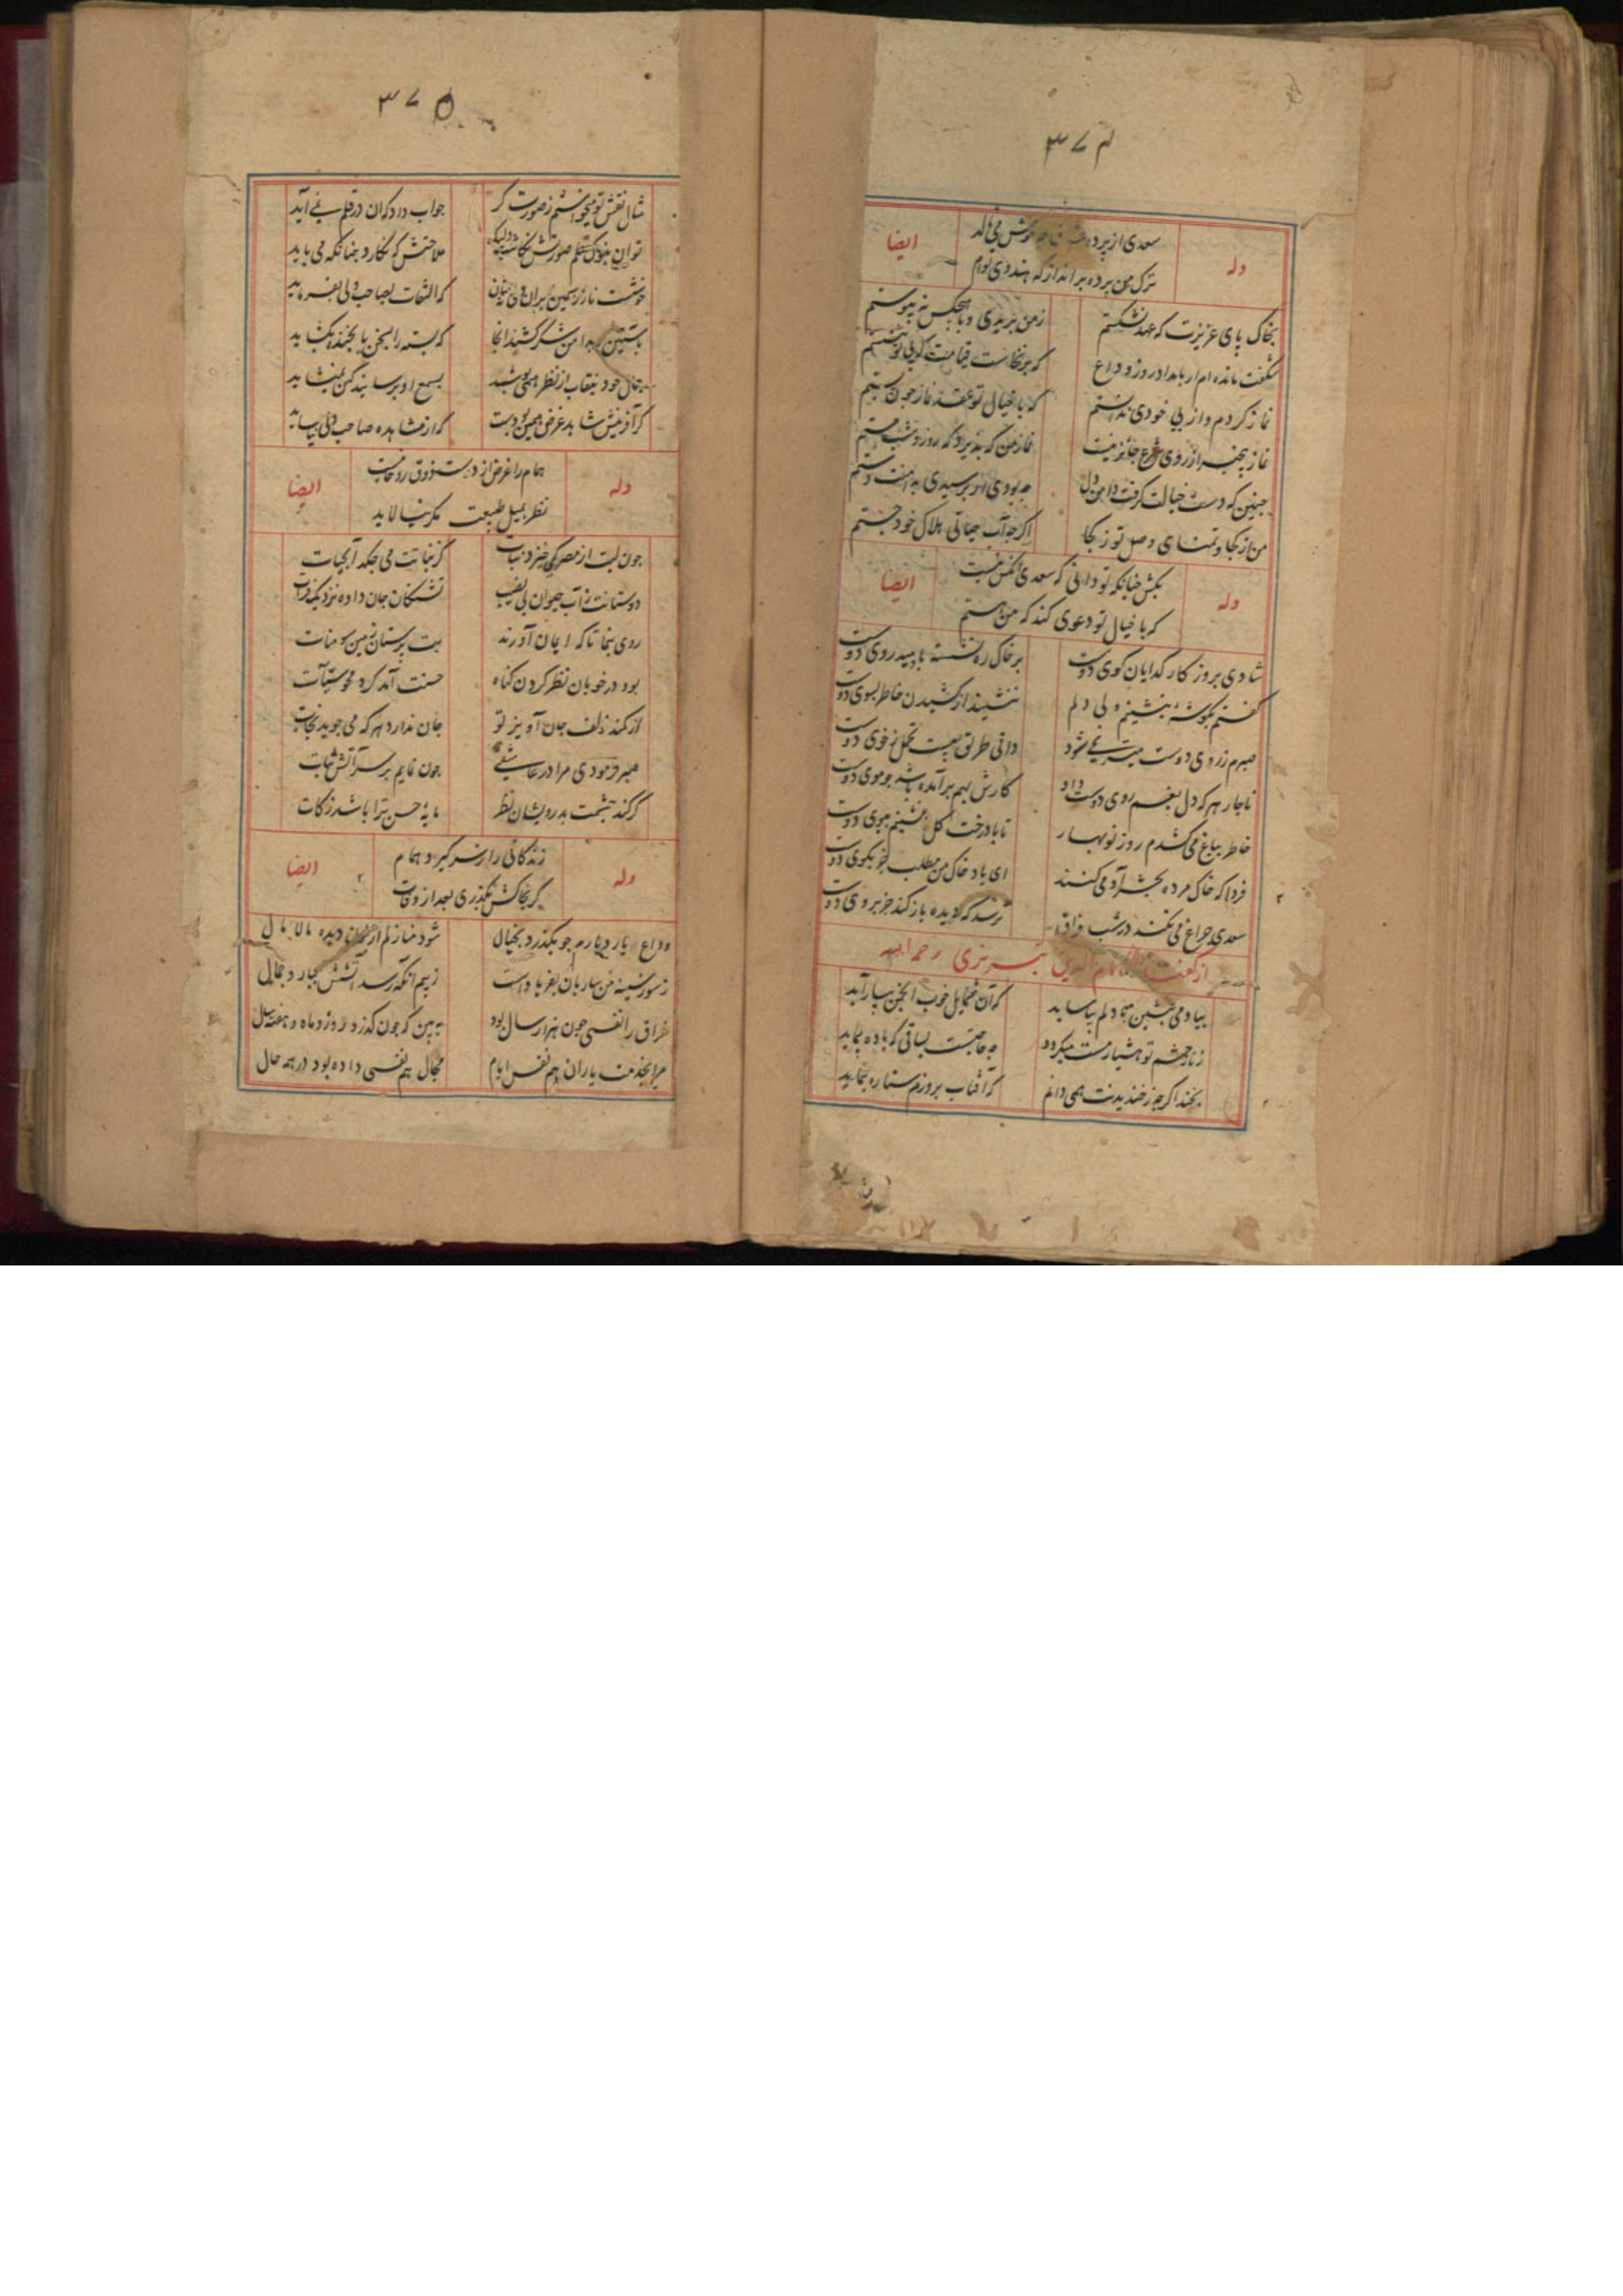 ۳۷۴
سعدی از پرده عشاق چه خوش می نالد
وله
ایضا
ترک من پرده برانداز که هندوی توام
بخاک پای عزیزت که عهد نشکستم
ز من بریدی و با هیچکس نپیوستم
شگفت مانده ام از بامداد روز وداع
که برنخاست قیامت که بی تو بنشستم
نماز کردم و از بی خودی ندانستم
که با خیال تو عقد نماز چون بستم
نماز بیخبر از روی شرع جائز نیست
نماز من که پذیرد که روز و شب مستم
چنین که دست خیالت گرفت دامن دل
چه بودی ار برسیدی بدامنت دستم
من از کجا و تمنای وصل تو ز کجا
اگرچه آب حیاتی هلاک خود جستم
بکش چنانکه تو دانی که سعدی آنکس نیست
وله
ایضا
که با خیال تو دعوی کند که من هستم
شادی بروزگار گدایان کوی دوست
بر خاک ره نشسته بامید روی دوست
گفتم بگوشه بنشینم ولی دلم
ننشیند از کشیدن خاطر بسوی دوست
صبرم ز روی دوست میسر نمی شود
دانی طریق چیست تحمل ز خوی دوست
ناچار هر که دل بغم روی دوست داد
کارش بهم برآمده باشد چو موی دوست
خاطر بباغ می کشدم روز نوبهار
تا با درخت گل بنشینم ببوی دوست
فردا که خاک مرده بحشر آدمی کنند
ای باد خاک من مطلب جز بکوی دوست
سعدی چراغ می نکند در شب فراق
ترسد که دیده باز کند جز بروی دوست
از گفتار همام الدین تبریزی رحمه الله
بیا دمی بنشین تا دلم بیاساید
که آن شمایل خوب انجمن بیاراید
ز ناز چشم تو هشیار مست میگردد
چه حاجتست بساقی که باده پیماید
بخند اگرچه ز خندیدنت همی دانم
که آفتاب بروزم ستاره بنماید
۳۷۵
مثال نقش تو میخواستم ز صورت گر
جواب داد که آن در قلم نمی آید
توان بنوک قلم صورتش نگاشت ولیک
ملاحتش که نگارد چنانکه می باید
خوشست ناز ز سیمین بران
که التفات بصاحب دلی بفرماید
باستین بدامن شکر کشند آنجا
که بسته را بسخن یا بخنده بگشاید
جمال خود بنقاب از نظر همی پوشد
بسمع او برسانید کین نمیشاید
کز آفرینش شاهد غرض همین بودست
که از مشاهده صاحب دلی بیاساید
همام را غرض از دوست ذوق روحانیست
وله
ایضا
نظر بمیل طبیعت مگر نیالاید
چون لبت از مصر کی خیزد نبات
کز نباتت می چکد آبحیات
دوستانت ز آب حیوان بی نصیب
تشنگان جان داده نزدیک فرات
روی بنما تا که ایمان آورند
بت پرستان زمین سومنات
بود در خوبان نظر کردن گناه
حسنت آمد کرد محو سیئات
از کمند زلف جان آویز تو
جان ندارد هر که می جوید نجات
صبر فرمودی مرا در عاشقی
چون نمایم بر سر آتش ثبات
گر کند چشمت بدرویشان نظر
مایۀ حسن ترا باشد زکات
زندگانی را ز سر گیرد همام
وله
ایضا
گر بخاکش بگذری بعد از وفات
وداع یار و دیارم چو بگذرد بخیال
شود منازلم از آب دیده مالامال
ز سوز سینه من ساربان بفریادست
ز بیم آنکه رسد آتشش ببار و جمال
فراق را نفسی چون هزار سال بود
ببین که چون گذرد روز و ماه و هفته و سال
مرا بخدمت یاران هم نفس ایام
مجال هم نفسی داده بود در همه حال